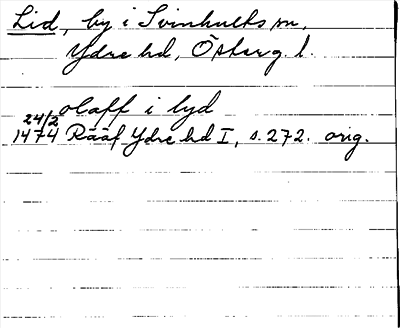 Lid, by i Svinhults sn,
Ydre hd, Österg. l.
olaff i lyd
24/2
1474 Rääf Ydre hd I, s. 272. orig.